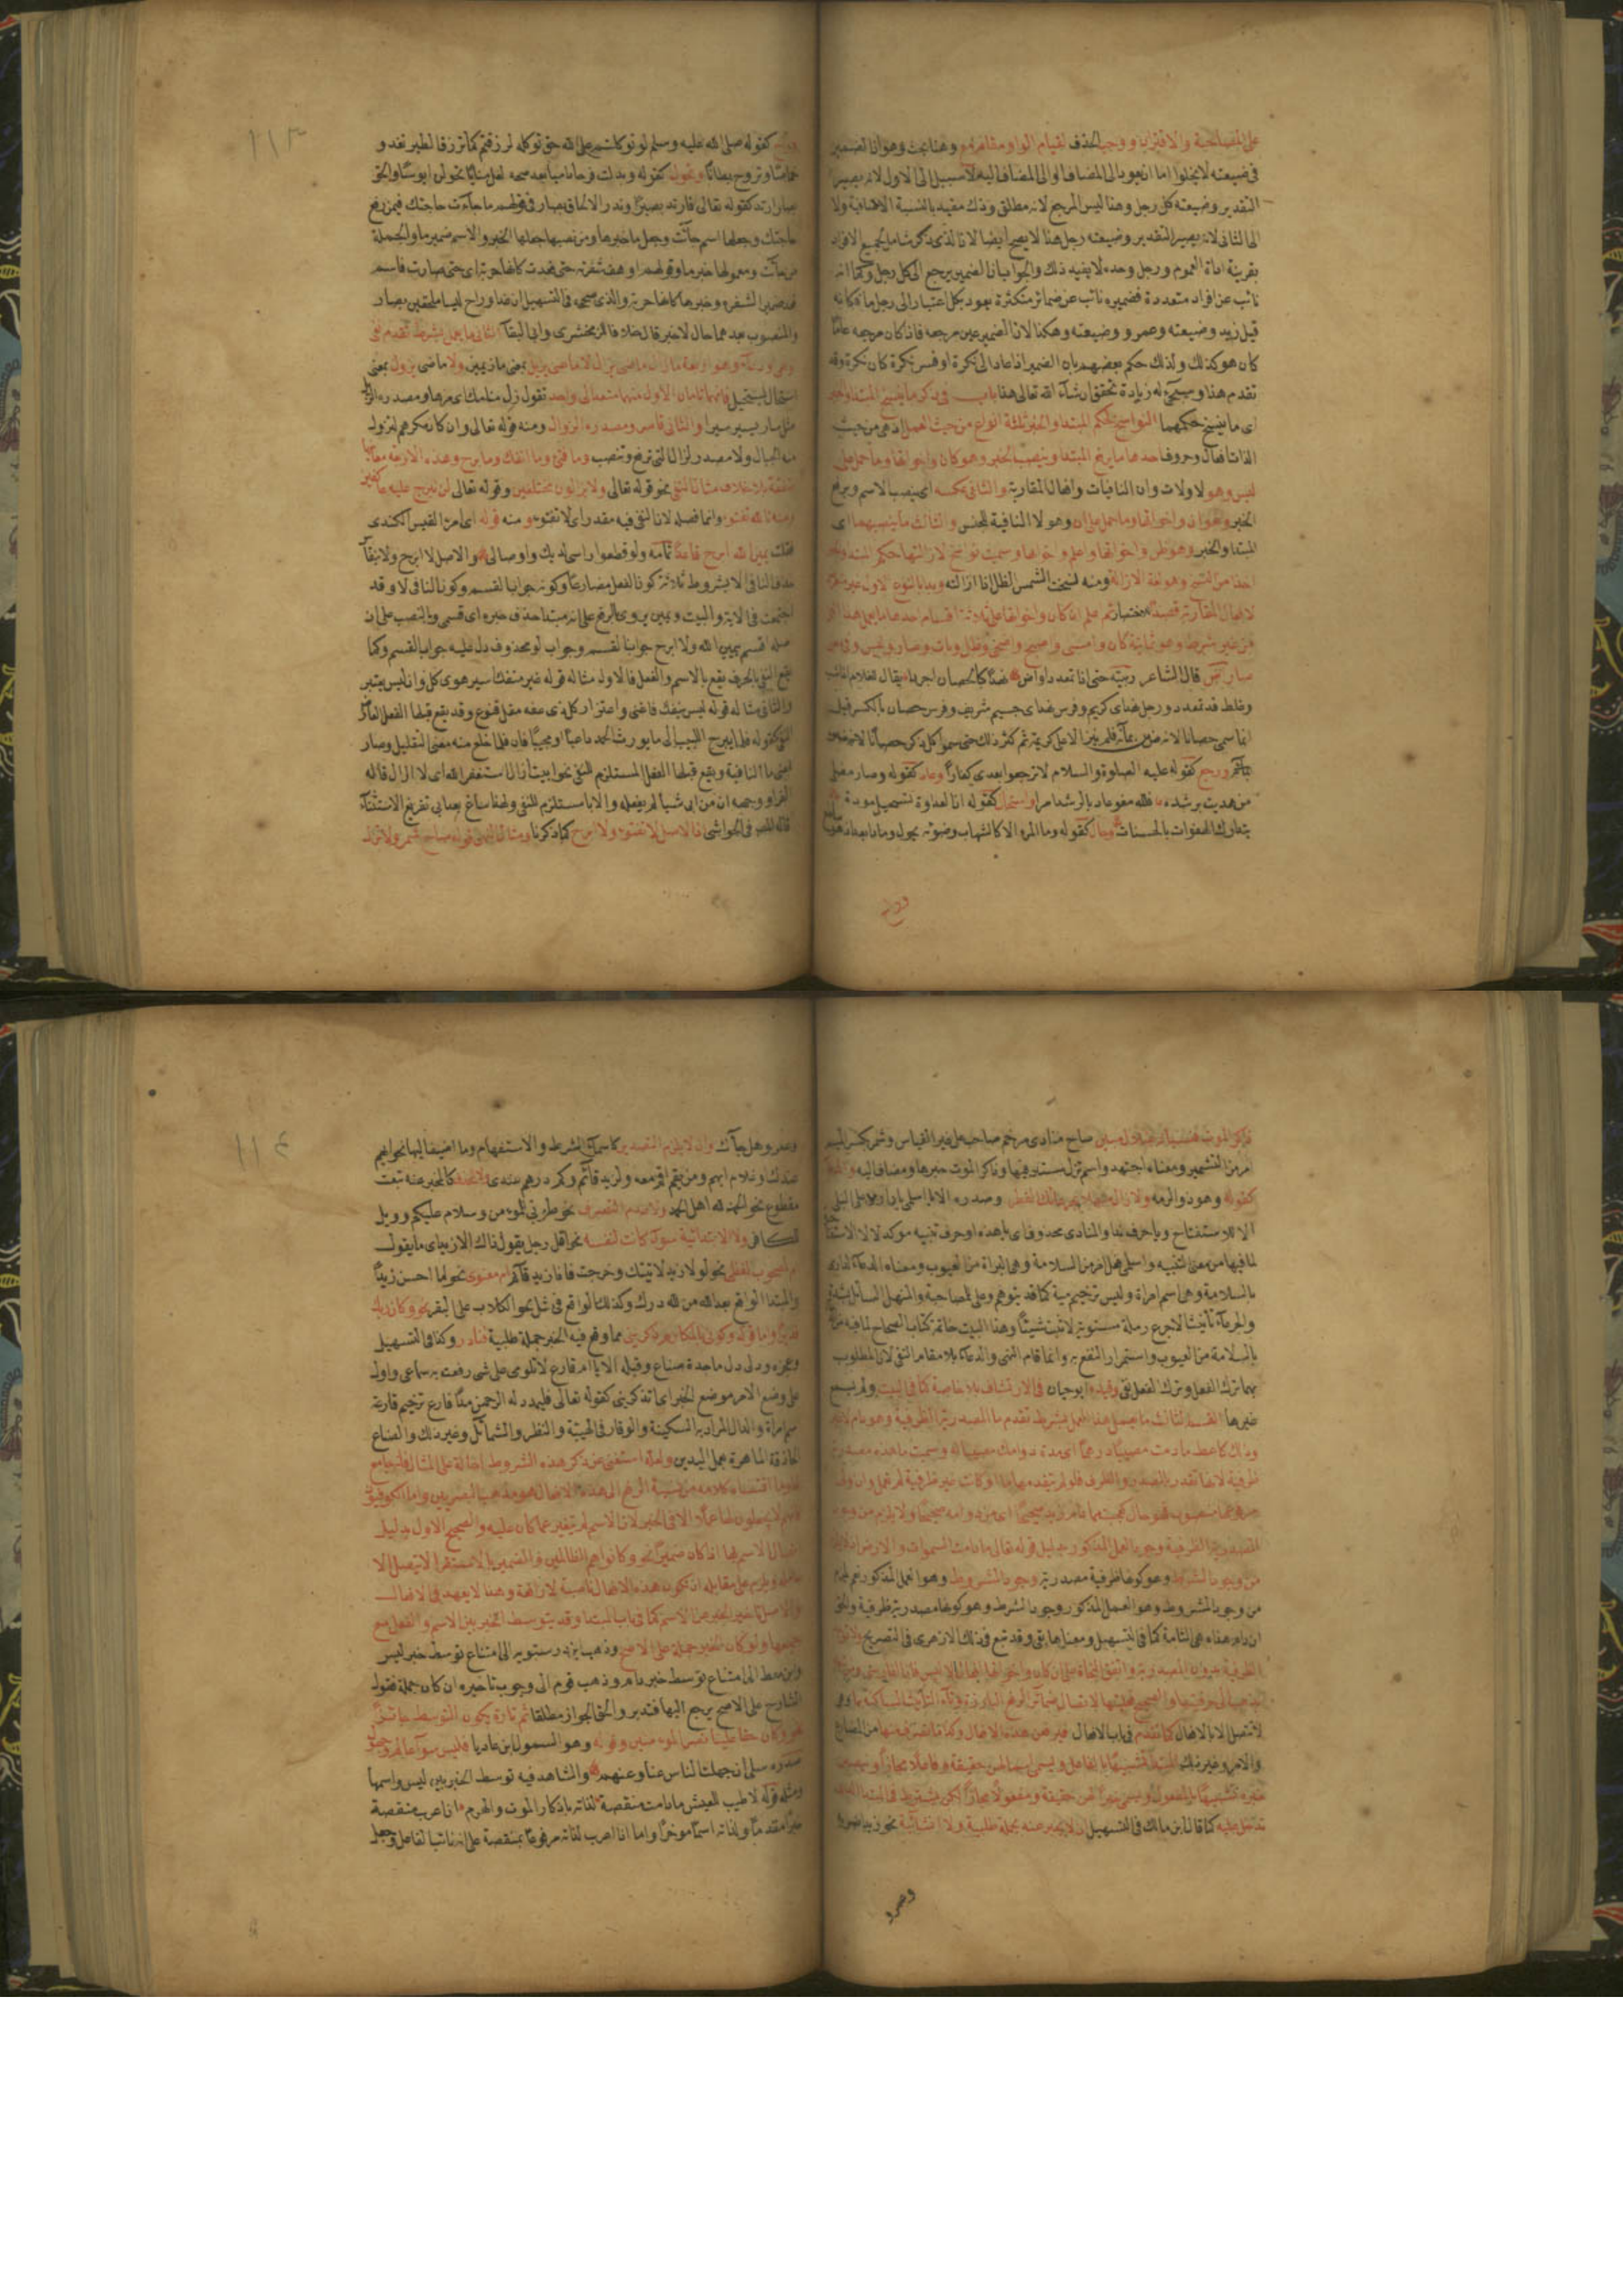 على المصاحبة والاقتران ووجب الحذف لقيام الواو مقام مع وهنا بحث وهو ان الضمير
في ضيعته لا يخلوا اما ان يعود الى المضاف او الى المضاف اليه لا سبيل الى الاول لانه يصير
التقدير وضيعته كل رجل وهنا ليس المرجع لانه مطلق وذلك مقيد بالنسبة الاضافية ولا
الى الثاني لانه يصير التقدير وضيعته رجل هنا لا يصح ايضا لان الذي ذكر شامل لجميع الافراد
بقرينة اداة العموم ورجل وحده لا يفيد ذلك والجواب ان الضمير يرجع الى كل رجل وكما انه
نائب عن افراد متعددة فضميره نائب عن ضمائر متكثرة يعود بكل اعتبار الى رجل ما فكانه
قيل زيد وضيعته وعمرو وضيعته وهكذا لان الضمير عين مرجعه فاذا كان مرجعه عاما
كان هو كذلك ولذلك حكم بعضهم بان الضمير اذا عاد الى نكرة او فسر بنكرة كان نكرة وقد
تقدم هذا وسيجئ له زيادة تحقق ان شاء الله تعالى هذا باب في ذكر ما ينسخ المبتدا والخبر
اى ما ينسخ حكمهما النواسخ لحكم المبتدا والخبر ثلثة انواع من حيث العمل اذ هي من حيث
الذات افعال وحروف احدها ما يرفع المبتدا وينصب الخبر وهو كان واخواتها وما حمل على
ليس وهو لا ولات وان النافيات وافعال المقاربة والثاني عكسه اى ينصب الاسم ويرفع
الخبر وهو ان واخواتها وما حمل على ان وهو لا النافية للجنس والثالث ما ينصبهما اى
المبتدا والخبر وهو ظن واخواتها واعلم واخواتها وسميت نواسخ لازالتها حكم المبتدا والخبر
اخذا من النسخ وهو لغة الازالة ومنه نسخت الشمس الظل اذا ازالته وبدا بالنوع الاول غير
لافعال المقاربة قصدا للاختصار ثم علم ان كان واخواتها على ثلاثة اقسام احدها ما يعمل هذا
من غير شرط وهو ثمانية كان وامسى واصبح واضحى وظل وبات وصار وليس وفي معنى
صار آض قال الشاعر ربيته حتى اذا تمعددا وآض نهدا كالحصان اجردا يقال للغلام
وغلظ قد تمعدد ورجل نهد اى كريم وفرس نهد اى جسيم شريف وفرس حصان بالكسر قيل
انما سمى حصانا لانه ضن بمائه فلم ينز الا على كريمة ثم كثر ذلك حتى سموا كل ذكر حصانا
ورجع كقوله عليه الصلوة والسلام لا ترجعوا بعدى كفارا وعاد كقوله وصار مضلى
من هديت برشده فلله مغو عاد بالرشد امرا واستحال كقوله ان العداوة تستحيل مودة
بتدارك الهفوات بالحسنات وحال كقوله وما المرء الا كالشهاب وضوئه يحول رمادا بعد اذ هو ساطع
وراح
١١٣
وراح كقوله صلى الله عليه وسلم لو توكلتم على الله حق توكله لرزقتم كما ترزق الطير تغدو
خماصا وتروح بطانا وتحول كقوله وبدلت قرحا داميا بعد صحة لعل منايانا تحولن ابؤسا والحق
بصار ارتد كقوله تعالى فارتد بصيرا وندر الالحاق بصار في قولهم ما جاءت حاجتك فيمن رفع
حاجتك وجعلها اسم جاءت وجعل ما خبرها ومن نصبها جعلها الخبر والاسم ضمير ما والجملة
من جاءت ومعمولها خبر ما وقولهم ارهف شفرته حتى قعدت كانها حربة اى حتى صارت فاسم
قعد ضمير الشفرة وخبرها كانها حربة والذى صححه في التسهيل ان غدا وراح ليسا ملحقين بصار
والمنصوب بعدهما حال لا خبر قال خلافا للزمخشرى وابي البقآ الثاني ما يعمل بشرط تقدم نفي
او نهي او دعاء وهو اربعة مازال ماضى يزال لا ماضى يزيل بمعنى ماز يميز ولا ماضى يزول بمعنى
انتقال المستحيل فانهما تامان الاول منهما متعد الى واحد تقول زل ضانك اى مزها ومصدره الزيل
مثل سار يسير سيرا والثاني قاصر ومصدره الزوال ومنه قوله تعالى وان كان مكرهم لتزول
منه الجبال ولا مصدر لزال التى ترفع وتنصب وما فتئ وما انفك وما برح وهذه الاربعة معانيها
متفقة بلا خلاف مثالها للنفي نحو قوله تعالى ولا يزالون مختلفين وقوله تعالى لن نبرح عليه عاكفين
ومنه تالله تفتؤ وانما فصله لان النفي فيه مقدر اى لا تفتؤ ومنه قوله اى امرئ القيس الكندى
فقلت يمين الله ابرح قاعدا تمامه ولو قطعوا راسى لديك واوصالى والاصل لا ابرح ولا
حذف النافي الا بشروط ثلاثة كون الفعل مضارعا وكونه جوابا لقسم وكون النافي لا وقد
اجتمعت في الاية والبيت ويمين يروى بالرفع على انه مبتدا حذف خبره اى قسمى وبالنصب على ان
اصله اقسم بيمين الله ولا ابرح جواب القسم وجواب لو محذوف دل عليه جواب القسم وكما
يقع النفي بالحرف يقع بالاسم والفعل فالاول مثاله قوله غير منفك اسير هوى كل وان ليس يعتبر
والثاني مثاله قوله ليس ينفك ذا غنى واعتزاز كل ذى عفة مقل قنوع وقد يقع قبلها الفعل
النفي كقوله قلما يبرح اللبيب الى ما يورث الحمد داعيا او مجيبا فان قلما خلع منه معنى التقليل وصار
بمعنى ما النافية ويقع قبلها الفعل المستلزم للنفي نحو ابيت ازال استغفر الله اى لا ازال قاله
الفراء ووجهه ان من ابى شيئا لم يفعله والاباء مستلزم للنفي ولهذا ساغ بعد ابى تفريغ الاستثنآء
قاله المص في الحواشى اذ الاصل لا تفتؤ ولا ابرح كما ذكرنا ومثال النهي قوله صاح شمر ولا تزل
ذاكر الموت فنسيانه ضلال مبين صاح منادى مرخم صاحب على غير القياس وشمر بكسر الميم
امر من التشمير ومعناه اجتهد واسم تزل مستتر فيها وذاكر الموت خبرها ومضاف اليه
كقوله وهو ذو الرمة ولا زال منهلا بجرعائك القطر وصدره الا يا اسلمى يا دار مى على البلى
الا للاستفتاح ويا حرف ندا والمنادى محذوف اى يا هذه او حرف تنبيه موكد لالا
لما فيها من معنى التنبيه واسلمى فعل امر من السلامة وهى البراة من العيوب ومعناه الدعاء
بالسلامة ومى اسم امراة وليس ترخيم مية كما قد يتوهم وعلى للمصاحبة والمنهل السائل بشدة
والجرعاء تانيث الاجرع رملة مستوية لا تنبت شيئا وهذا البيت خاتمة كتاب الصحاح
بالسلامة من العيوب واستمرار النفع به وانما قام النهى والدعاء بلا مقام النفي لان المطلوب
بهما ترك الفعل وترك الفعل نفي وقيده ابو حيان في الارتشاف بلا خاصة كما في البيت ولم يسمع
غيرها القسم الثالث ما يعمل هذا العمل بشرط تقدم ما المصدرية الظرفية وهو دام
وذلك كاعط ما دمت مصيبا درهما اى مدة دوامك مصيبا له وسميت ما هذه مصدرية
ظرفية لانها تقدر بالمصدر والظرف فلو لم يتقدمها ما او كانت غير ظرفية لم تعمل وان
مرفوعها منصوب فهو حال كعجبت مما دام زيد صحيحا اى من دوامه صحيحا ولا يلزم من وجود
المصدرية الظرفية وجوب العمل المذكور بدليل قوله تعالى ما دامت السموات والارض
من وجود الشرط وهو كونها ظرفية مصدرية وجود المشروط وهو العمل المذكور
من وجود المشروط وهو العمل المذكور وجود الشرط وهو كونها مصدرية ظرفية والحق
ان دام هذه هي التامة كما في التسهيل ومعناها بقي وقد تبع في ذلك الازهرى في التصريح
الظرفية بدون المصدرية واتفق النحاة على ان كان واخواتها افعال الا ليس فان الفارسى
يذهب الى حرفيتها والصحيح فعليتها لاتصال ضمائر الرفع البارزة وتاء التانيث الساكنة بها وهى
لا تتصل الا بالافعال كما تقدم في باب الافعال فترفع هذه الافعال وكذا ما تصرف منها من المضارع
والامر وغير ذلك المبتدا تشبيها بالفاعل ويسمى اسما لهن حقيقة وفاعلا مجازا وينصبن
خبره تشبيها بالمفعول ويسمى خبرا لهن حقيقة ومفعولا مجازا لكن يشترط في المبتدا
تدخل عليه كما قال ابن مالك في التسهيل ان لا يخبر عنه بجملة طلبية ولا انشائية نحو زيد اضربه
وعمرو
١١٤
وعمرو هل جآءك وان لا يلزم التصدير كاسمآء الشرط والاستفهام وما اضيف اليها نحو ايهم
عندك وغلام ايهم ومن يقم اقم معه ولزيد قائم وكم درهم عندى ولا الحذف كالمخبر عنه بنعت
مقطوع نحو الحمد لله اهل الحمد ولا عدم التصرف نحو طوبى للمؤمن وسلام عليكم وويل
للكافر ولا الابتدائية سوآء كانت لنفسه نحو اقل رجل يقول ذاك الا زيد اى ما يقول
او لمصحوب لفظى نحو لولا زيد لاتيتك وخرجت فاذا زيد قائم ام معنوى نحو ما احسن زيدا
والمبتدا الواقع بعد لله من لله درك وكذلك الواقع في مثل نحو الكلاب على البقر نحو وكان ربك
قديرا واما قوله وكونى بالمكارم ذكرينى مما وقع فيه الخبر جملة طلبية فنادر وكذا في التسهيل
وعجزه ودلى دل ماجدة صناع وقبله الا يا ام فارع لا تلومى على شئ رفعت به سماعى واول
على وضع الامر موضع الخبر اى تذكرينى كقوله تعالى فليمدد له الرحمن مدا فارع ترخيم فارعة
اسم امراة والدال المراد به السكينة والوقار في الهيبة والنظر والشمائل وغير ذلك والصناع
الحاذقة الماهرة بعمل اليدين ولعله استغنى عن ذكر هذه الشروط احالة على المثال
وما اقتضاه كلامه من نسبة الرفع الى هذه الافعال هو مذهب البصريين واما الكوفيون
فانهم لا يجعلون لها عملا الا في الخبر لان الاسم لم يتغير عما كان عليه والصحيح الاول بدليل
اتصال الاسم بها اذا كان ضميرا نحو وكانوا هم الظالمين والضمير بالاستقرا لا يتصل الا
بعامله ويلزم على مقابله ان تكون هذه الافعال ناصبة لا رافعة وهذا لا يعهد في الافعال
والاصل تاخير الخبر عن الاسم كما في باب المبتدا وقد يتوسط الخبر بين الاسم والفعل مع
جميعها ولو كان الخبر جملة على الاصح وذهب ابن درستويه الى امتناع توسط خبر ليس
وابن معط الى امتناع توسط خبر دام وذهب قوم الى وجوب تاخيره ان كان جملة فقول
الشارح على الاصح يرجع اليها فتدبر والحق الجواز مطلقا ثم تارة يكون التوسط جائزا
نحو وكان حقا علينا نصر المؤمنين وقوله وهو السموءل بن عاديا فليس سوآء عالم وجهول
صدره سلى ان جهلت الناس عنا وعنهم والشاهد فيه توسط الخبر بين ليس واسمها
ومثله قوله لا طيب للعيش ما دامت منغصة لذاته بادكار الموت والهرم اذا اعرب منغصة
خبرا مقدما ولذاته اسما موخرا واما اذا اعرب لذاته مرفوعا بمنغصة على انه نائب الفاعل وجعل